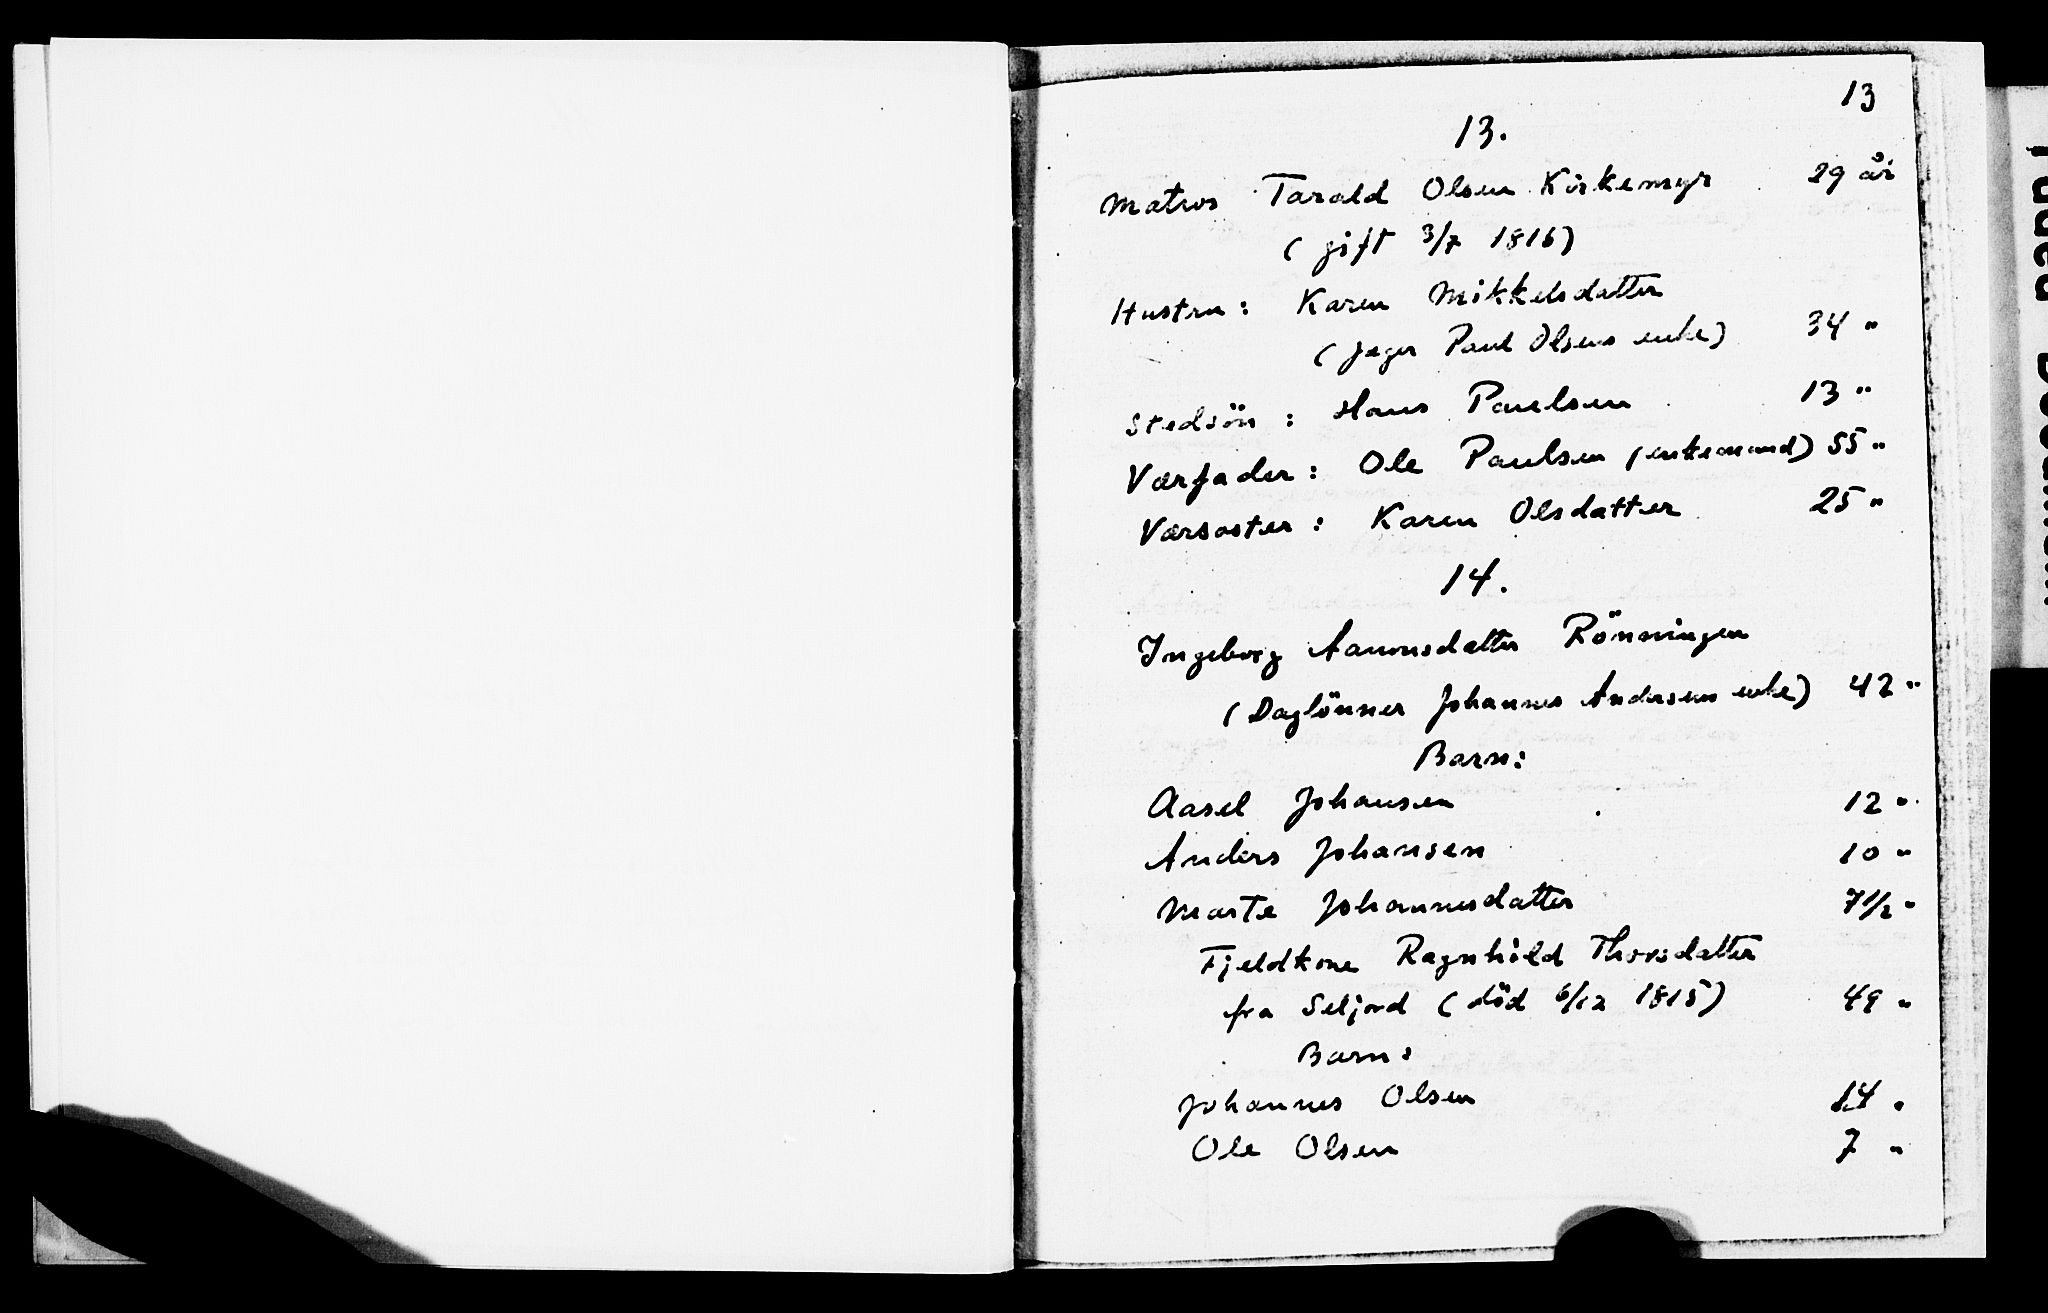 13
13.
Matros Tarald Olsen Kirkemyr 29 år
(gift 3/7 1816)
Hustru: Karen Mikkelsdatter
(Jeger Paul Olsens enke) 34 "
Stedsön: Hans Paulsen 13 "
Værfader: Ole Paulsen (enkemand) 55 "
Værsøster: Karen Olsdatter 25 "
14.
Ingeborg Aanonsdatter Rönningen
(Daglönner Johannes Andersens enke) 42 "
Barn:
Aasel Johansen 12 "
Anders Johansen 10 "
Marte Johannesdatter 7 1/2 "
Fjeldkone Ragnhild Thorsdatter
fra Seljord (död 6/12 1815) 49 "
Barn:
Johannes Olsen 14 "
Ole Olsen 7 "